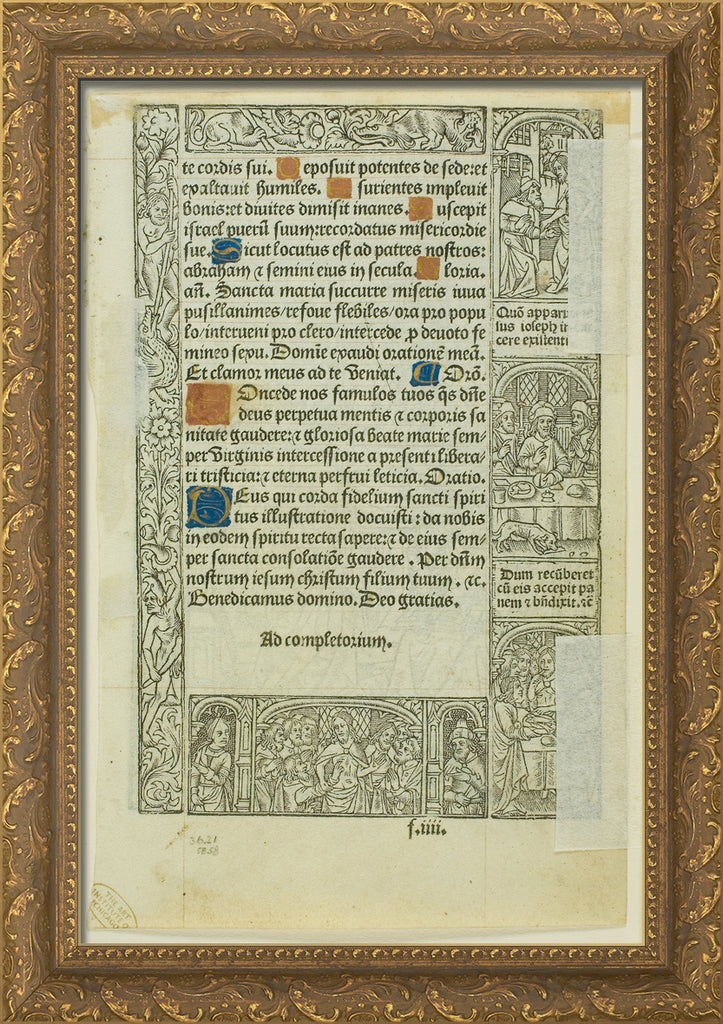 te cordis sui. D eposuit potentes de sede: et
exaltauit humiles. E surientes impleuit
bonis: et diuites dimisit inanes. S uscepit
israel puerū suum: recordatus misericordie
sue. Sicut locutus est ad patres nostros:
abraham ⁊ semini eius in secula. G loria.
añ. Sancta maria succurre miseris iuua
pusillanimes/refoue flebiles/ora pro popu
lo/interueni pro clero/intercede ꝓ deuoto fe
mineo sexu. Domine exaudi orationē meā.
Et clamor meus ad te veniat. Orō.
Oncede nos famulos tuos q̄s dñe
deus perpetua mentis ⁊ corporis sa
nitate gaudere: ⁊ gloriosa beate marie sem-
per virginis intercessione a presenti libera-
ri tristicia: ⁊ eterna perfrui leticia. Oratio.
DEus qui corda fidelium sancti spiri
tus illustratione docuisti: da nobis
in eodem spiritu recta sapere: ⁊ de eius sem-
per sancta consolatiōe gaudere. Per dñm
nostrum iesum christum filium tuum. ⁊c.
Benedicamus domino. Deo gratias.
Ad completorium.
Quō appar
sus ioseph in
cere existenti
Dum recūberet
cū eis accepit pa
nem ⁊ bñdixit. ⁊c
f.iiii.
36.21
5858
THE ART
INSTITUTE OF
CHICAGO